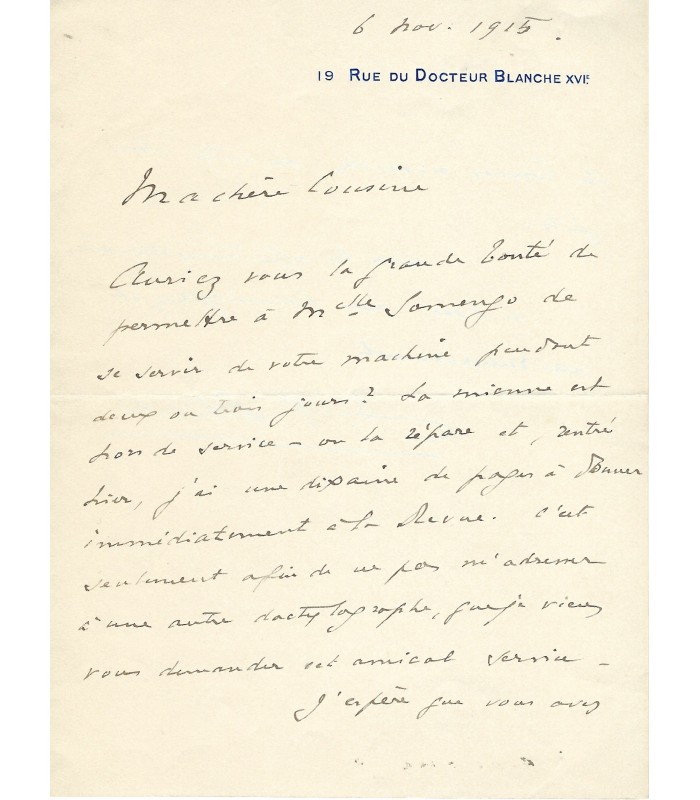 6 nov. 1915.
19 RUE DU DOCTEUR BLANCHE XVIE
Ma chère Cousine
Auriez vous la grande bonté de
permettre à Mlle Somengo de
se servir de votre machine pendant
deux ou trois jours? La mienne est
hors de service – on la répare et, rentré
hier, j'ai une dizaine de pages à donner
immédiatement à la Revue. C'est
seulement afin de ne pas m'adresser
à une autre dactylographe, que je viens
vous demander cet amical service –
J'espère que vous avez